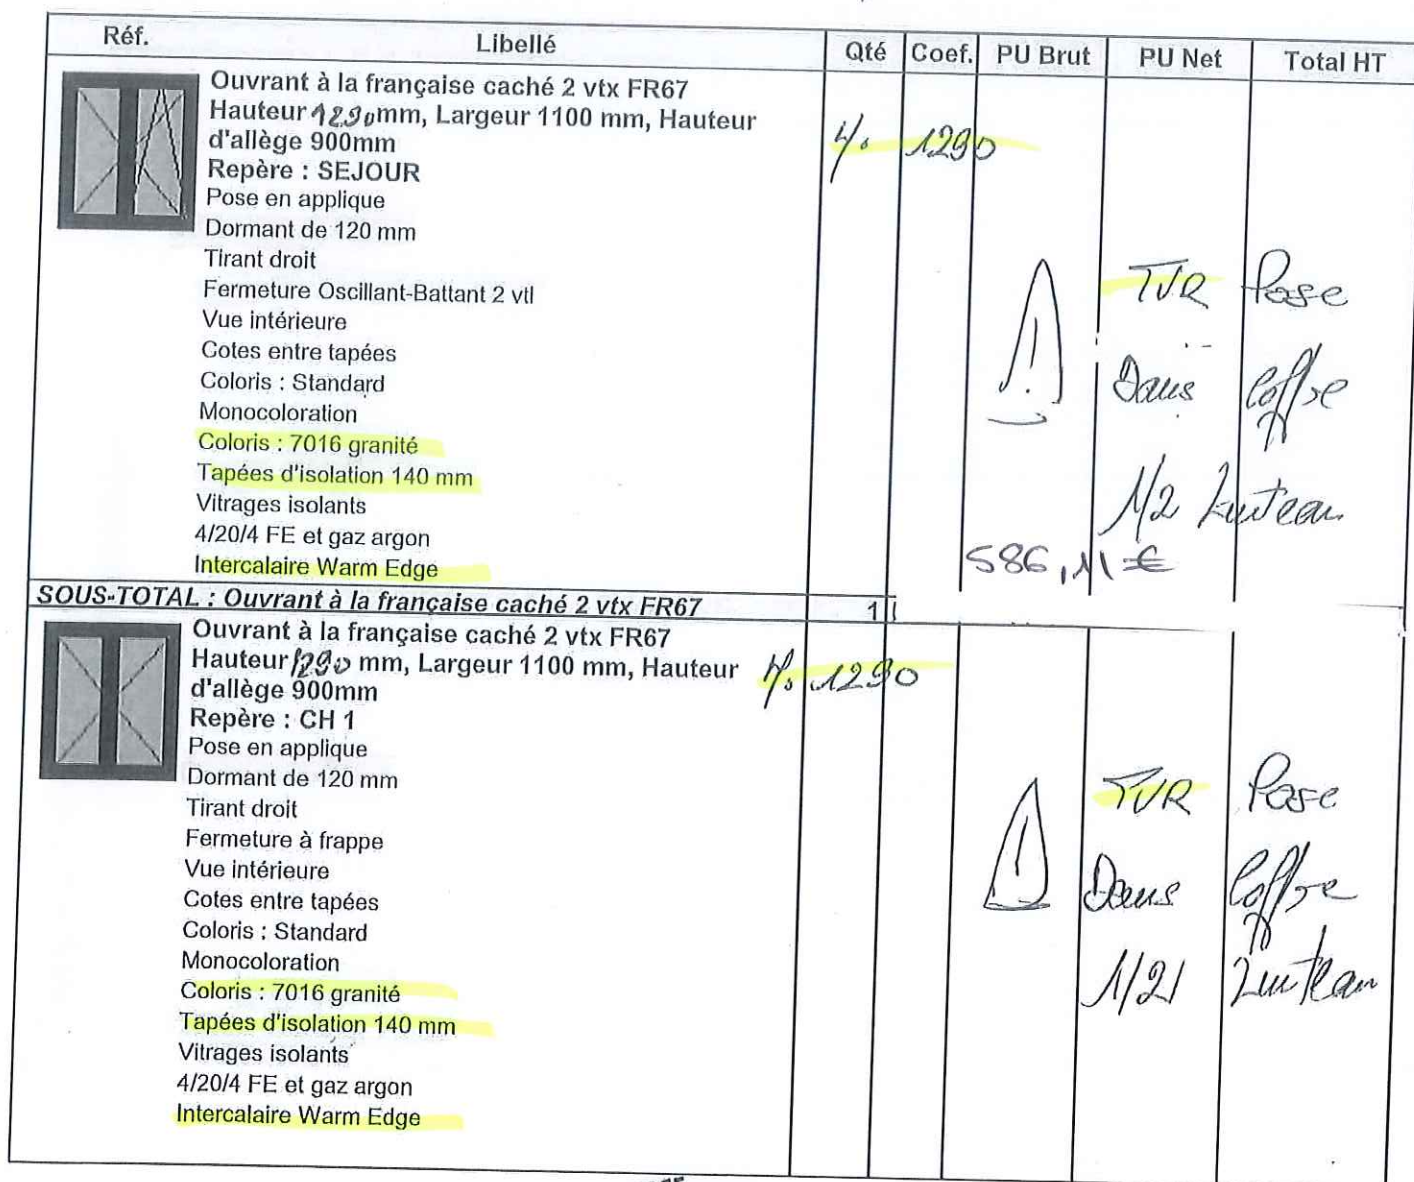 Réf. Libellé Qté Coef. PU Brut PU Net Total HT
Ouvrant à la française caché 2 vtx FR67
Hauteur 1290mm, Largeur 1100 mm, Hauteur
d'allège 900mm
1290
Repère : SEJOUR
Pose en applique
Dormant de 120 mm
Tirant droit
Fermeture Oscillant-Battant 2 vtl
Vue intérieure
Cotes entre tapées
Coloris : Standard
Monocoloration
Coloris : 7016 granité
Tapées d'isolation 140 mm
Vitrages isolants
4/20/4 FE et gaz argon
Intercalaire Warm Edge
TVR Pose
Dans Coffre
1/2 Linteau
586,11 €
SOUS-TOTAL : Ouvrant à la française caché 2 vtx FR67 1
Ouvrant à la française caché 2 vtx FR67
Hauteur 1290 mm, Largeur 1100 mm, Hauteur
1290
d'allège 900mm
Repère : CH 1
Pose en applique
Dormant de 120 mm
Tirant droit
Fermeture à frappe
Vue intérieure
Cotes entre tapées
Coloris : Standard
Monocoloration
Coloris : 7016 granité
Tapées d'isolation 140 mm
Vitrages isolants
4/20/4 FE et gaz argon
Intercalaire Warm Edge
TVR Pose
Dans Coffre
1/2 Linteau